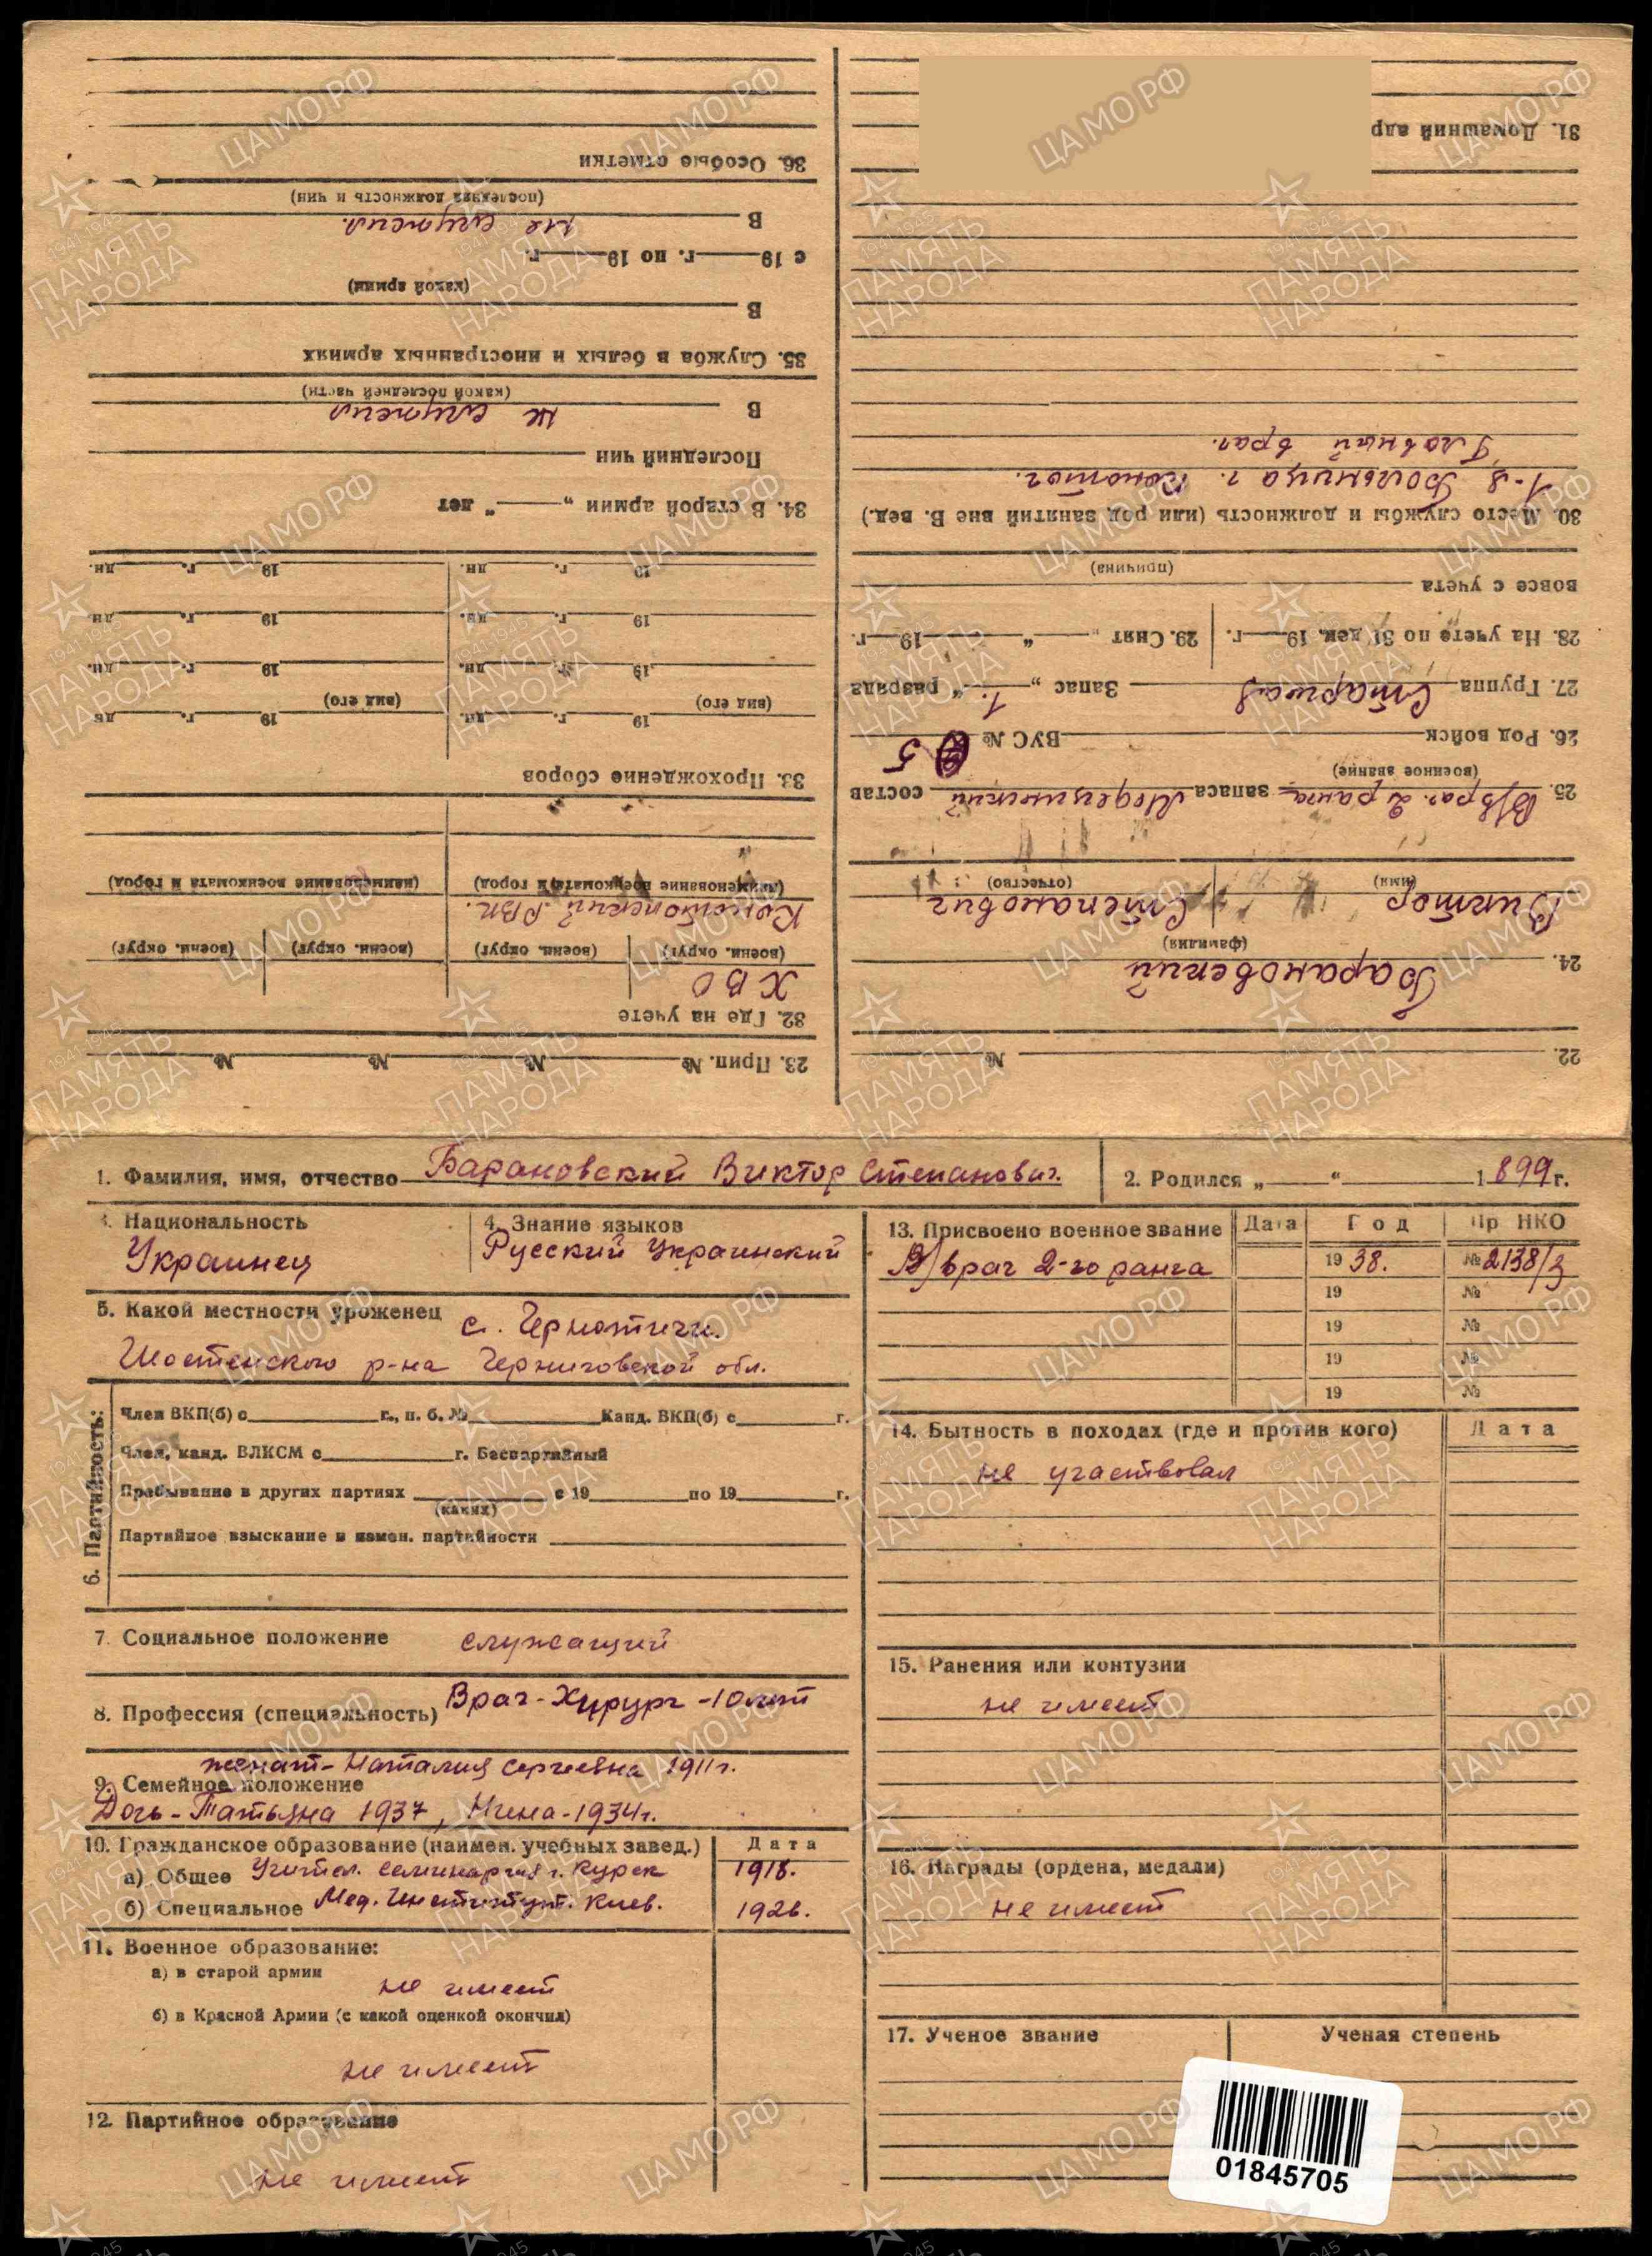 1. Фамилия, имя, отчество Барановский Виктор Степанович.
2. Родился „ “ 1899 г.
3. Национальность
Украинец
4. Знание языков
Русский Украинский
5. Какой местности уроженец с. Чернотичи.
Шостенского р-на Черниговской обл.
6. Партийность:
Член ВКП(б) с г., п. б. № Канд. ВКП(б) с г.
Член, канд. ВЛКСМ с г. Беспартийный
Пребывание в других партиях с 19 по 19 г.
(каких)
Партийное взыскание и измен. партийности
7. Социальное положение служащий
8. Профессия (специальность) Врач-Хирург -10 лет
женат- Наталия Сергеевна 1911г.
9. Семейное положение
Дочь - Татьяна 1937, Нина-1934г.
10. Гражданское образование (наимен. учебных завед.) Дата
а) Общее Учител. семинария г. Курск 1918.
б) Специальное Мед. Институт. Киев. 1926.
11. Военное образование:
а) в старой армии
не имеет
б) в Красной Армии (с какой оценкой окончил)
не имеет
12. Партийное образование
не имеет
13. Присвоено военное звание Дата Год Пр НКО
В/врач 2-го ранга 19 38. № 2138/з
19 №
19 №
19 №
19 №
14. Бытность в походах (где и против кого) Дата
не участвовал
15. Ранения или контузии
не имеет
16. Награды (ордена, медали)
не имеет
17. Ученое звание Ученая степень
01845705
22. №
24. Барановский
(фамилия)
Виктор Степанович
(имя) (отчество)
25. В/врач. 2 ранга запаса Медецинский состав
(военное звание)
26. Род войск ВУС № 5
27. Группа Старшая Запас „ 1. “ разряда
28. На учете по 31 дек. 19 г. 29. Снят „ “ 19 г.
вовсе с учета
(причина)
30. Место службы и должность (или род занятий вне В. вед.)
1-я Больница г. Конотоп.
Главный врач.
31. Домашний адр
23. Прип. № № № №
32. Где на учете
ХВО
(военн. округ) (военн. округ) (военн. округ) (военн. округ)
Конотопский РВК.
(наименование военкомата и город) (наименование военкомата и город)
33. Прохождение сборов
19 г. дн. 19 г. дн
(вид его) (вид его)
19 г. дн. 19 г. дн.
19 г. дн. 19 г. дн
19 г. дн. 19 г. дн.
34. В старой армии „ “ лет
Последний чин
В не служил
(какой последней части)
35. Служба в белых и иностранных армиях
В
(какой армии)
с 19 г. по 19 г.
В не служил.
(последняя должность и чин)
36. Особые отметки
ЦАМО.РФ
1941-1945
ПАМЯТЬ
НАРОДА